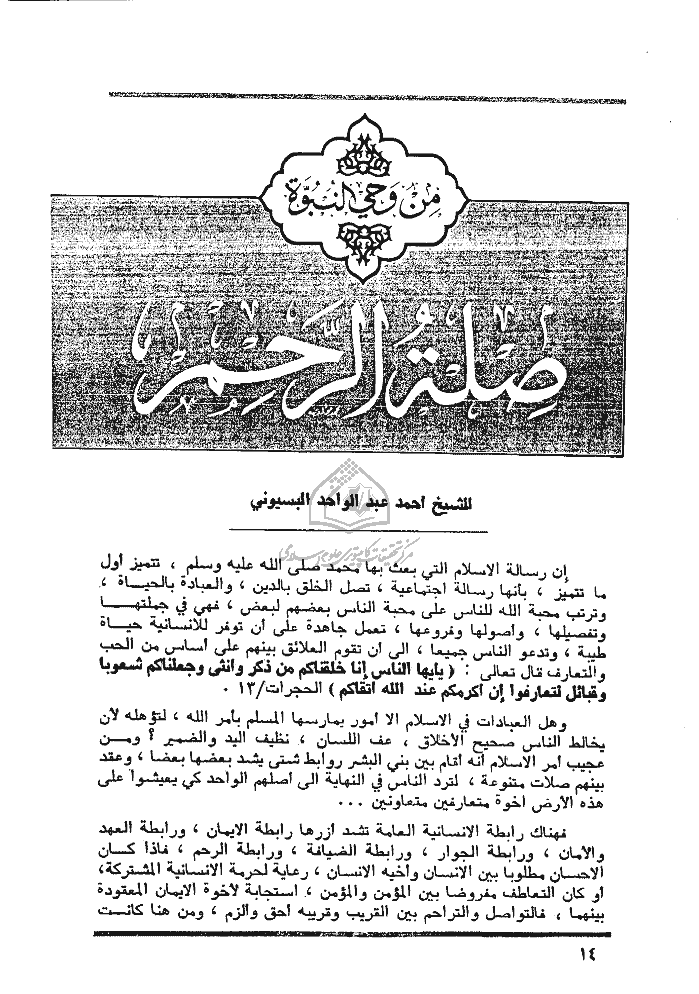 مِنْ وَحْيِ النُّبُوَّةِ
صِلَةُ الرَّحِمِ
للشيخ احمد عبد الواحد البسيوني
مرکز تحقیقات کامپیوتری علوم اسلامی
إن رسالة الاسلام التي بعث بها محمد صلى الله عليه وسلم ، تتميز أول
ما تتميز ، بأنها رسالة اجتماعية ، تصل الخلق بالدين ، والعبادة بالحياة ،
وترتب محبة الله للناس على محبة الناس بعضهم لبعض ، فهي في جملتهـا
وتفصيلها ، وأصولها وفروعها ، تعمل جاهدة على أن توفر للانسانية حياة
طيبة ، وتدعو الناس جميعا ، الى أن تقوم العلائق بينهم على أساس من الحب
والتعارف قال تعالى : ( يأيها الناس إنا خلقناكم من ذكر وانثى وجعلناكم شعوبا
وقبائل لتعارفوا إن اكرمكم عند الله اتقاكم ) الحجرات/١٣ .
وهل العبادات في الاسلام الا أمور يمارسها المسلم بأمر الله ، لتؤهله لأن
يخالط الناس صحيح الأخلاق ، عف اللسان ، نظيف اليد والضمير ؟ ومـن
عجيب أمر الاسلام أنه أقام بين بني البشر روابط شتى يشد بعضها بعضا ، وعقد
بينهم صلات متنوعة ، لترد الناس في النهاية الى أصلهم الواحد كي يعيشوا على
هذه الأرض اخوة متعارفين متعاونين ...
فهناك رابطة الانسانية العامة تشد أزرها رابطة الايمان ، ورابطة العهد
والأمان ، ورابطة الجوار ، ورابطة الضيافة ، ورابطة الرحم ، فاذا كـان
الاحسان مطلوبا بين الانسان وأخيه الانسان ، رعاية لحرمة الانسانية المشتركة،
أو كان التعاطف مفروضا بين المؤمن والمؤمن ، استجابة لأخوة الايمان المعقودة
بينهما ، فالتواصل والتراحم بين القريب وقريبه أحق وألزم ، ومن هنا كانـت
١٤